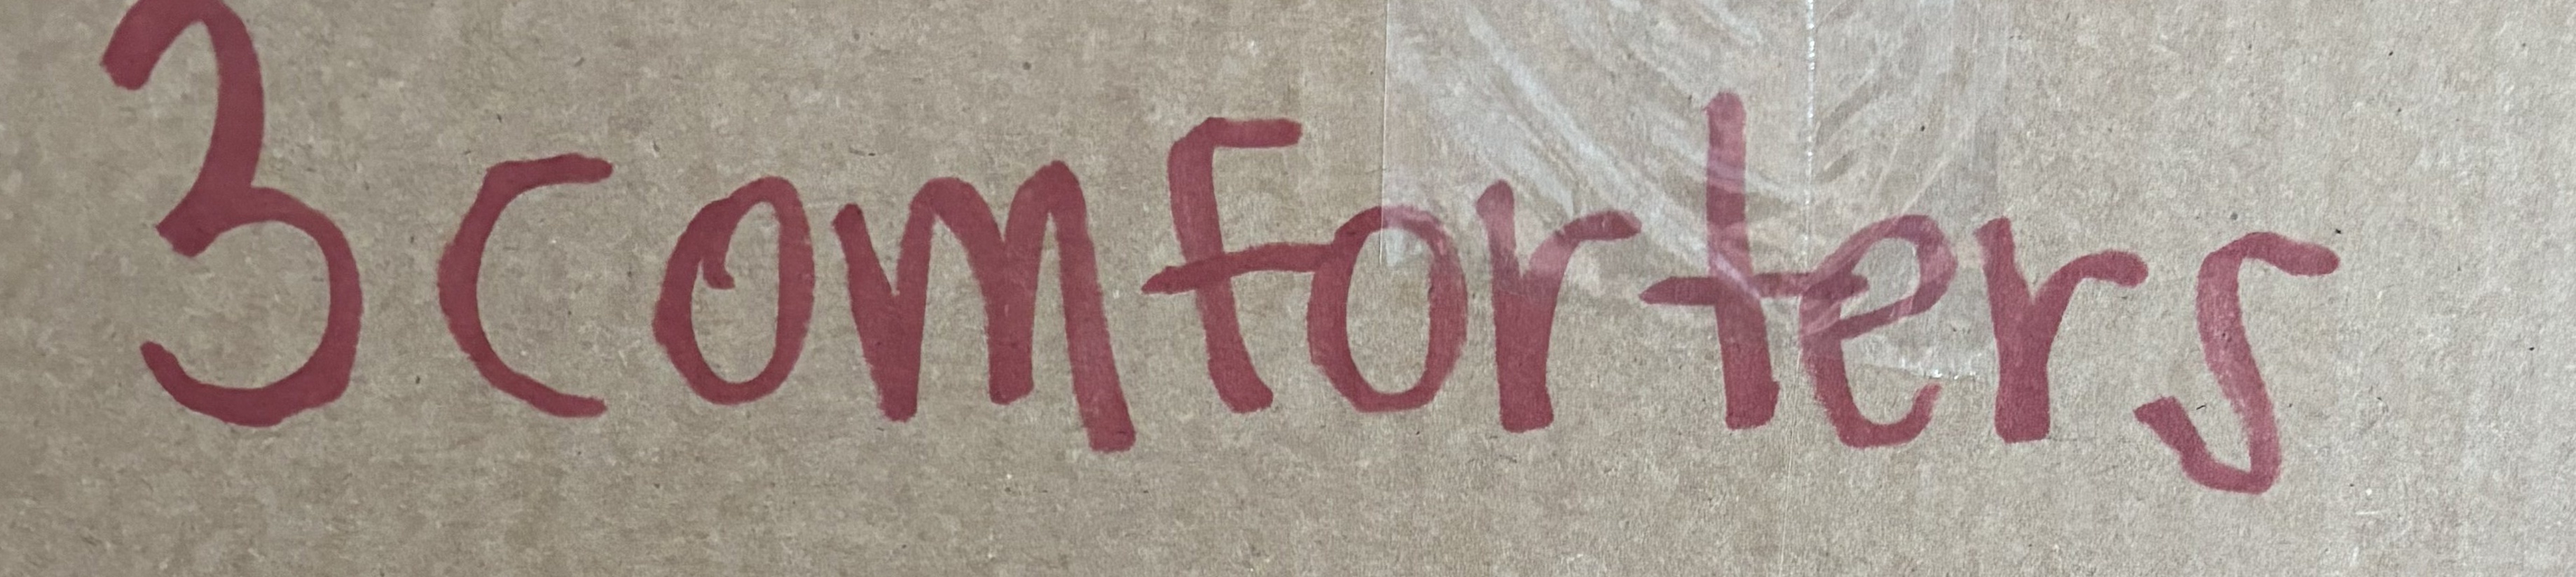 3 comforters